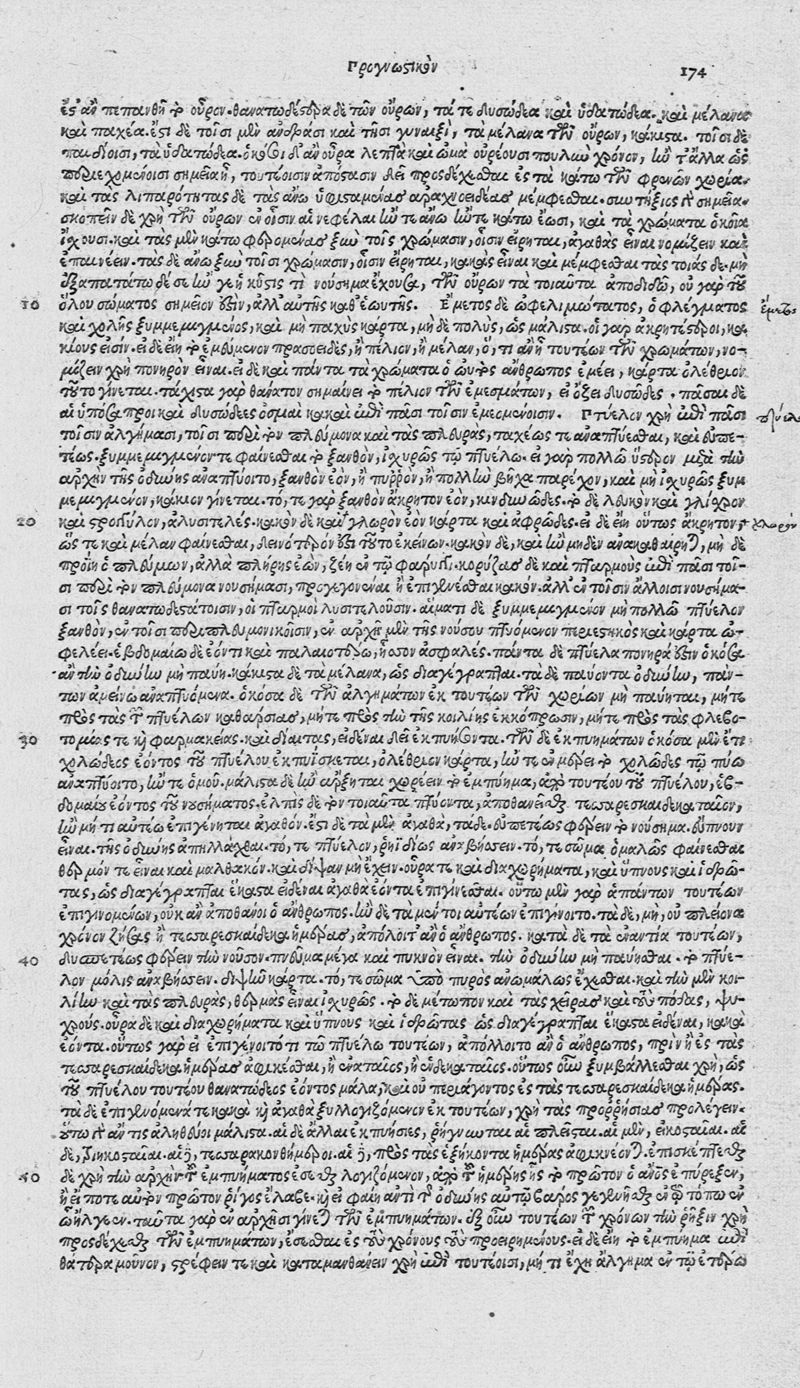 Προγνωστικὸν
174
ἔς' ἂν πεπανθῆ τὸ οὖρον. θανατωδέστερα δὲ τῶν οὔρων, τά τε δυσώδεα καὶ ὑδατώδεα. καὶ μέλανα
καὶ παχέα. ἔστι δὲ τοῖσι μὲν ἀνδράσι καὶ τῆσι γυναιξὶ, τὰ μέλανα τῶν οὔρων, κάκιστα. τοῖσι δὲ
παιδίοισι, τὰ ὑδατώδεα. ὁκόσοι δ' ἂν οὖρα λεπτὰ καὶ ὠμὰ οὐρέουσι πουλὺν χρόνον, ἢν τ' ἄλλα ὡς
περιεχομένοισι σημεῖα ᾖ, τουτέοισιν ἀπόστασιν δεῖ προσδέχεσθαι ἐς τὰ κάτω τῶν φρενῶν χωρία.
καὶ τὰς λιπαρότητας δὲ τὰς ἄνω ὑφισταμένας ἀραχνοειδέας μέμφεσθαι. συντήξιος γὰρ σημεῖα.
σκοπεῖν δὲ χρὴ τῶν οὔρων ἐν οἷσιν αἱ νεφέλαι ἤν τε ἄνω ἤν τε κάτω ἔωσι, καὶ τὰ χρώματα ὁκοῖα
ἴσχουσι. καὶ τὰς μὲν κάτω φερομένας ξὺν τοῖς χρώμασιν, οἷσιν εἴρηται, ἀγαθὰς εἶναι νομίζειν καὶ
ἐπαινέειν. τὰς δὲ ἄνω ξὺν τοῖσι χρώμασιν, οἷσιν εἴρηται, κακὰς εἶναι καὶ μέμφεσθαι τὰς τοιάσδε. μὴ
ἐξαπατάτω δέ σε ἤν γε ἡ κύστις τὶ νούσημα ἔχουσα, τῶν οὔρων τὰ τοιαῦτα ἀποδιδῷ, οὐ γὰρ τοῦ
10 ὅλου σώματος σημεῖον ἐστιν, ἀλλ' αὐτῆς καθ' ἑωυτῆς. Ἔμετος δὲ ὠφελιμώτατος, ὁ φλέγματος ἔμετος
καὶ χολῆς ξυμμεμιγμένος, καὶ μὴ παχὺς κάρτα, μὴ δὲ πολὺς, ὡς μάλιστα. οἱ γὰρ ἀκρητέστεροι, κα
κίους εἰσίν. εἰ δὲ εἴη τὸ ἐμεύμενον πρασοειδὲς, ἢ πέλιον, ἢ μέλαν, ὅ, τι ἂν ᾖ τουτέων τῶν χρωμάτων, νο-
μίζειν χρὴ πονηρὸν εἶναι. εἰ δὲ καὶ πάντα τὰ χρώματα ὁ ωὐτὸς ἄνθρωπος ἐμέει, κάρτα ὀλέθριον
τοῦτο γίνεται. τάχιστα γὰρ θάνατον σημαίνει τὸ πέλιον τῶν ἐμεσμάτων, εἰ ὄζει δυσῶδες. πᾶσαι δὲ
αἱ ὑπόσαπροι καὶ δυσώδεες ὀσμαὶ κακαὶ ἐπὶ πᾶσι τοῖσιν ἐμεομένοισιν. Πτύελον χρὴ ἐπὶ πᾶσι πτύελον
τοῖσιν ἀλγήμασι, τοῖσι περὶ τὸν πλεύμονα καὶ τὰς πλευρὰς, ταχέως τε ἀναπτύεσθαι, καὶ εὐπε-
τέως. ξυμμεμιγμένον τε φαίνεσθαι τὸ ξανθὸν, ἰσχυρῶς τῷ πτυέλῳ. εἰ γὰρ πολλῷ ὕστερον μετὰ τὴν
ἀρχὴν τῆς ὀδύνης ἀναπτύοιτο, ξανθὸν ἐὸν, ἢ πυῤῥὸν, ἢ πολλὴν βῆχα παρέχον, καὶ μὴ ἰσχυρῶς ξυμ
μεμιγμένον, κάκιον γίνεται. τό, τε γὰρ ξανθὸν ἄκρητον ἐὸν, κινδυνῶδες. τὸ δὲ λευκὸν καὶ γλίσχρον
20 καὶ στρογγύλον, ἀλυσιτελές. κακὸν δὲ καὶ χλωρὸν ἐὸν κάρτα καὶ ἀφρῶδες. εἰ δὲ εἴη οὕτως ἄκρητον, χλωρὸν
ὥς τε καὶ μέλαν φαίνεσθαι, δεινότερόν ἐστι τοῦτο ἐκείνων. κακὸν δὲ, καὶ ἢν μηδὲν ἀνακαθαίρηται, μὴ δὲ
προΐῃ ὁ πλεύμων, ἀλλὰ πλήρης ἐὼν, ζέῃ ἐν τῇ φάρυγγι. κορύζας δὲ καὶ πταρμοὺς ἐπὶ πᾶσι τοῖ-
σι περὶ τὸν πλεύμονα νουσήμασι, προγεγονέναι ἢ ἐπιγενέσθαι κακόν. ἀλλ' ἐν τοῖσιν ἄλλοισι νουσήμα-
σι τοῖς θανατωδεστάτοισιν, οἱ πταρμοὶ λυσιτελοῦσιν. αἵματι δὲ ξυμμεμιγμένον μὴ πολλῷ πτύελον
ξανθὸν, ἐν τοῖσι περιπλευμονικοῖσιν, ἐν ἀρχῇ μὲν τῆς νούσου πτυόμενον περιεστηκὸς καὶ κάρτα ὠ-
φελέει. ἑβδομαίῳ δὲ ἐόντι καὶ παλαιοτέρῳ, ἧσσον ἀσφαλές. πάντα δὲ πτύελα πονηρά ἐστιν ὁκόσα
ἂν τὴν ὀδύνην μὴ παύῃ. κάκιστα δὲ τὰ μέλανα, ὡς διαγέγραπται. τὰ δὲ παύοντα ὀδύνην, πάν-
των ἀμείνω ἀναπτυόμενα. ὁκόσα δὲ τῶν ἀλγημάτων ἐκ τουτέων τῶν χωρίων μὴ παύηται, μήτε
πρὸς τὰς τῶν πτυέλων καθάρσιας, μήτε πρὸς τὴν τῆς κοιλίης ἐκκόπρωσιν, μήτε πρὸς τὰς φλεβο-
30 τομίας τε καὶ φαρμακείας. καὶ διαίτας, εἰδέναι δεῖ ἐκπυήσοντα. τῶν δὲ ἐκπυημάτων ὁκόσα μὲν ἔτι
χολώδεος ἐόντος τοῦ πτυέλου ἐκπυΐσκεται, ὀλέθριον κάρτα, ἤν τε ἐν μέρει τὸ χολῶδες τῷ πύῳ
ἀναπτύοιτο, ἤν τε ὁμοῦ. μάλιστα δὲ ἢν ἄρξηται χωρέειν τὸ ἐμπύημα, ἀπὸ τουτέου τοῦ πτυέλου, ἑβ-
δομαίου ἐόντος τοῦ νοσήματος. ἐλπὶς δὲ τὸν τοιαῦτα πτύοντα, ἀποθανεῖσθαι τεσσαρεσκαιδεκαταῖον,
ἢν μή τι αὐτέῳ ἐπιγένηται ἀγαθόν. ἔστι δὲ τὰ μὲν ἀγαθὰ, τάδε. εὐπετέως φέρειν τὸ νούσημα. εὔπνουν
εἶναι. τῆς ὀδύνης ἀπηλλάχθαι. τό, τε πτύελον, ῥηϊδίως ἀναβήσσειν. τό, τε σῶμα ὁμαλῶς φαίνεσθαι
θερμόν τε εἶναι καὶ μαλθακόν. καὶ δίψαν μὴ ἔχειν. οὖρά τε καὶ διαχωρήματα, καὶ ὕπνους καὶ ἱδρῶ-
τας, ὡς διαγέγραπται ἕκαστα εἰδέναι ἀγαθὰ ἐόντα ἐπιγίνεσθαι. οὕτω μὲν γὰρ ἁπάντων τουτέων
ἐπιγινομένων, οὐκ ἂν ἀποθάνοι ὁ ἄνθρωπος. ἢν δὲ τὰ μέν τοι αὐτέων ἐπιγίνοιτο. τὰ δὲ, μὴ, οὐ πλείονα
χρόνον ζήσας ἢ τεσσαρεσκαίδεκα ἡμέρας, ἀπόλοιτ' ἂν ὁ ἄνθρωπος. κατὰ δὲ τὰ ἐναντία τουτέων,
40 δυσπετέως φέρειν τὴν νοῦσον. πνεῦμα μέγα καὶ πυκνὸν εἶναι. τὴν ὀδύνην μὴ παύεσθαι. τὸ πτύε-
λον μόλις ἀναβήσσειν. διψῆν κάρτα. τό, τε σῶμα ὑπὸ πυρὸς ἀνωμάλως ἔχεσθαι. καὶ τὴν μὲν κοι-
λίην καὶ τὰς πλευρὰς, θερμὰς εἶναι ἰσχυρῶς. τὸ δὲ μέτωπον καὶ τὰς χεῖρας καὶ τοὺς πόδας, ψυ-
χρούς. οὖρα δὲ καὶ διαχωρήματα καὶ ὕπνους καὶ ἱδρῶτας ὡς διαγέγραπται ἕκαστα εἰδέναι, κακὰ
ἐόντα. οὕτως γὰρ εἰ ἐπιγένοιτό τι τῷ πτυέλῳ τουτέων, ἀπόλλοιτο ἂν ὁ ἄνθρωπος, πρὶν ἢ ἐς τὰς
τεσσαρεσκαίδεκα ἡμέρας ἀφικέσθαι, ἢ ἐναταῖος, ἢ ἑνδεκαταῖος. οὕτως οὖν ξυμβάλλεσθαι χρὴ, ὡς
τοῦ πτυέλου τουτέου θανατώδεος ἐόντος μάλα, καὶ οὐ περιάγοντος ἐς τὰς τεσσαρεσκαίδεκα ἡμέρας.
τὰ δὲ ἐπιγενόμενά τε κακὰ καὶ ἀγαθὰ ξυλλογιζόμενον ἐκ τουτέων, χρὴ τὰς προῤῥήσιας προλέγειν.
οὕτω γὰρ ἄν τις ἀληθεύοι μάλιστα. αἱ δὲ ἄλλαι ἐκπυήσιες, ῥήγνυνται αἱ πλεῖσται. αἱ μὲν, εἰκοσταῖαι. αἱ
δὲ, τριηκοσταῖαι. αἱ δὲ, τεσσαρακονθήμεροι. αἱ δὲ, πρὸς τὰς ἑξήκοντα ἡμέρας ἀφικνέονται. ἐπισκέπτεσθαι
40 δὲ χρὴ τὴν ἀρχὴν τοῦ ἐμπυήματος ἔσεσθαι λογιζόμενον, ἀπὸ τῆς ἡμέρης ἧς τὸ πρῶτον ὁ ἄνθρωπος ἐπύρεξεν,
ἢ εἴ ποτε αὐτὸν πρῶτον ῥῖγος ἔλαβε. καὶ εἰ φαίη ἀντὶ τῆς ὀδύνης αὐτῷ βάρος γεγενῆσθαι ἐν τῷ τόπῳ ἐν
ᾧ ἤλγεεν. ταῦτα γὰρ ἐν ἀρχῇσι γίνεται τῶν ἐμπυημάτων. ἐξ οὖν τουτέων τῶν χρόνων τὴν ῥῆξιν χρὴ
προσδέχεσθαι τῶν ἐμπυημάτων, ἔσεσθαι ἐς τοὺς χρόνους τοὺς προειρημένους. εἰ δὲ εἴη τὸ ἐμπύημα ἐπὶ
θάτερα μοῦνον, στρέφειν τε καὶ καταμανθάνειν χρὴ ἐπὶ τουτέοισι, μή τι ἔχῃ ἄλγημα ἐν τῷ ἑτέρῳ